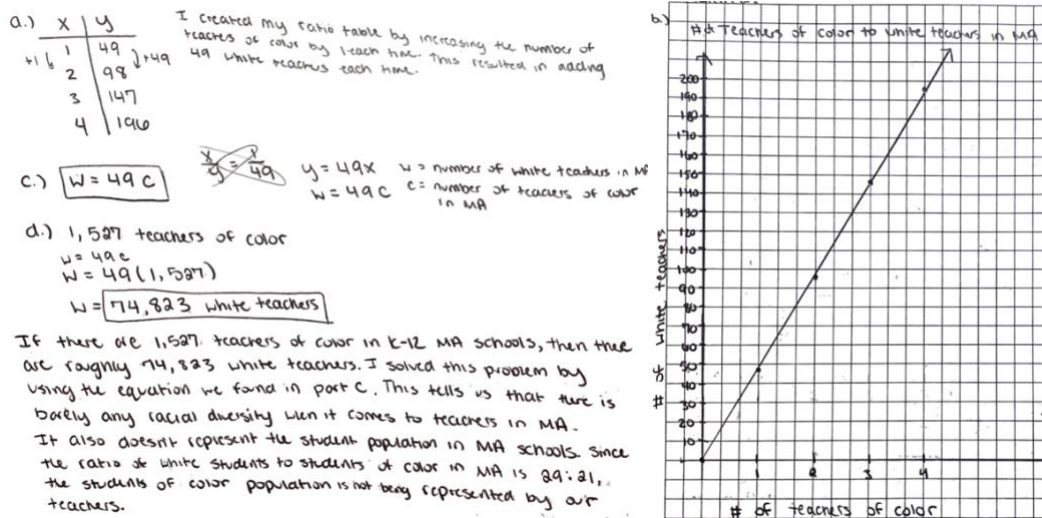 a.) x | y
1 | 49
2 | 98
3 | 147
4 | 196
+1
+49
I created my ratio table by increasing the number of
teachers of color by 1 each time. This resulted in adding
49 white teachers each time.
c.) w = 49 c
x/y = 1/49
y = 49x
w = 49 c
w = number of white teachers in MA
c = number of teachers of color
in MA
d.) 1,527 teachers of color
w = 49c
w = 49(1,527)
w = 74,823 white teachers
If there are 1,527 teachers of color in K-12 MA schools, then there
are roughly 74,823 white teachers. I solved this problem by
using the equation we found in part C. This tells us that there is
barely any racial diversity when it comes to teachers in MA.
It also doesn't represent the student population in MA schools. Since
the ratio of white students to students of color in MA is 29:21,
the students of color population is not being represented by our
teachers.
b.)
# of Teachers of color to white teachers in MA
200
190
180
170
160
150
140
130
120
110
100
90
80
70
60
50
40
30
20
10
# of white teachers
1 2 3 4
# of teachers of color